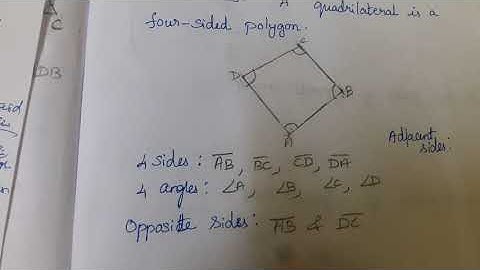 A
C
quadrilateral is a
four-sided polygon.
DB
C
D
B
A
Adjacent
sides:
4 sides: AB, BC, CD, DA
4 angles: ∠A, ∠B, ∠C, ∠D
Opposite sides: AB & DC